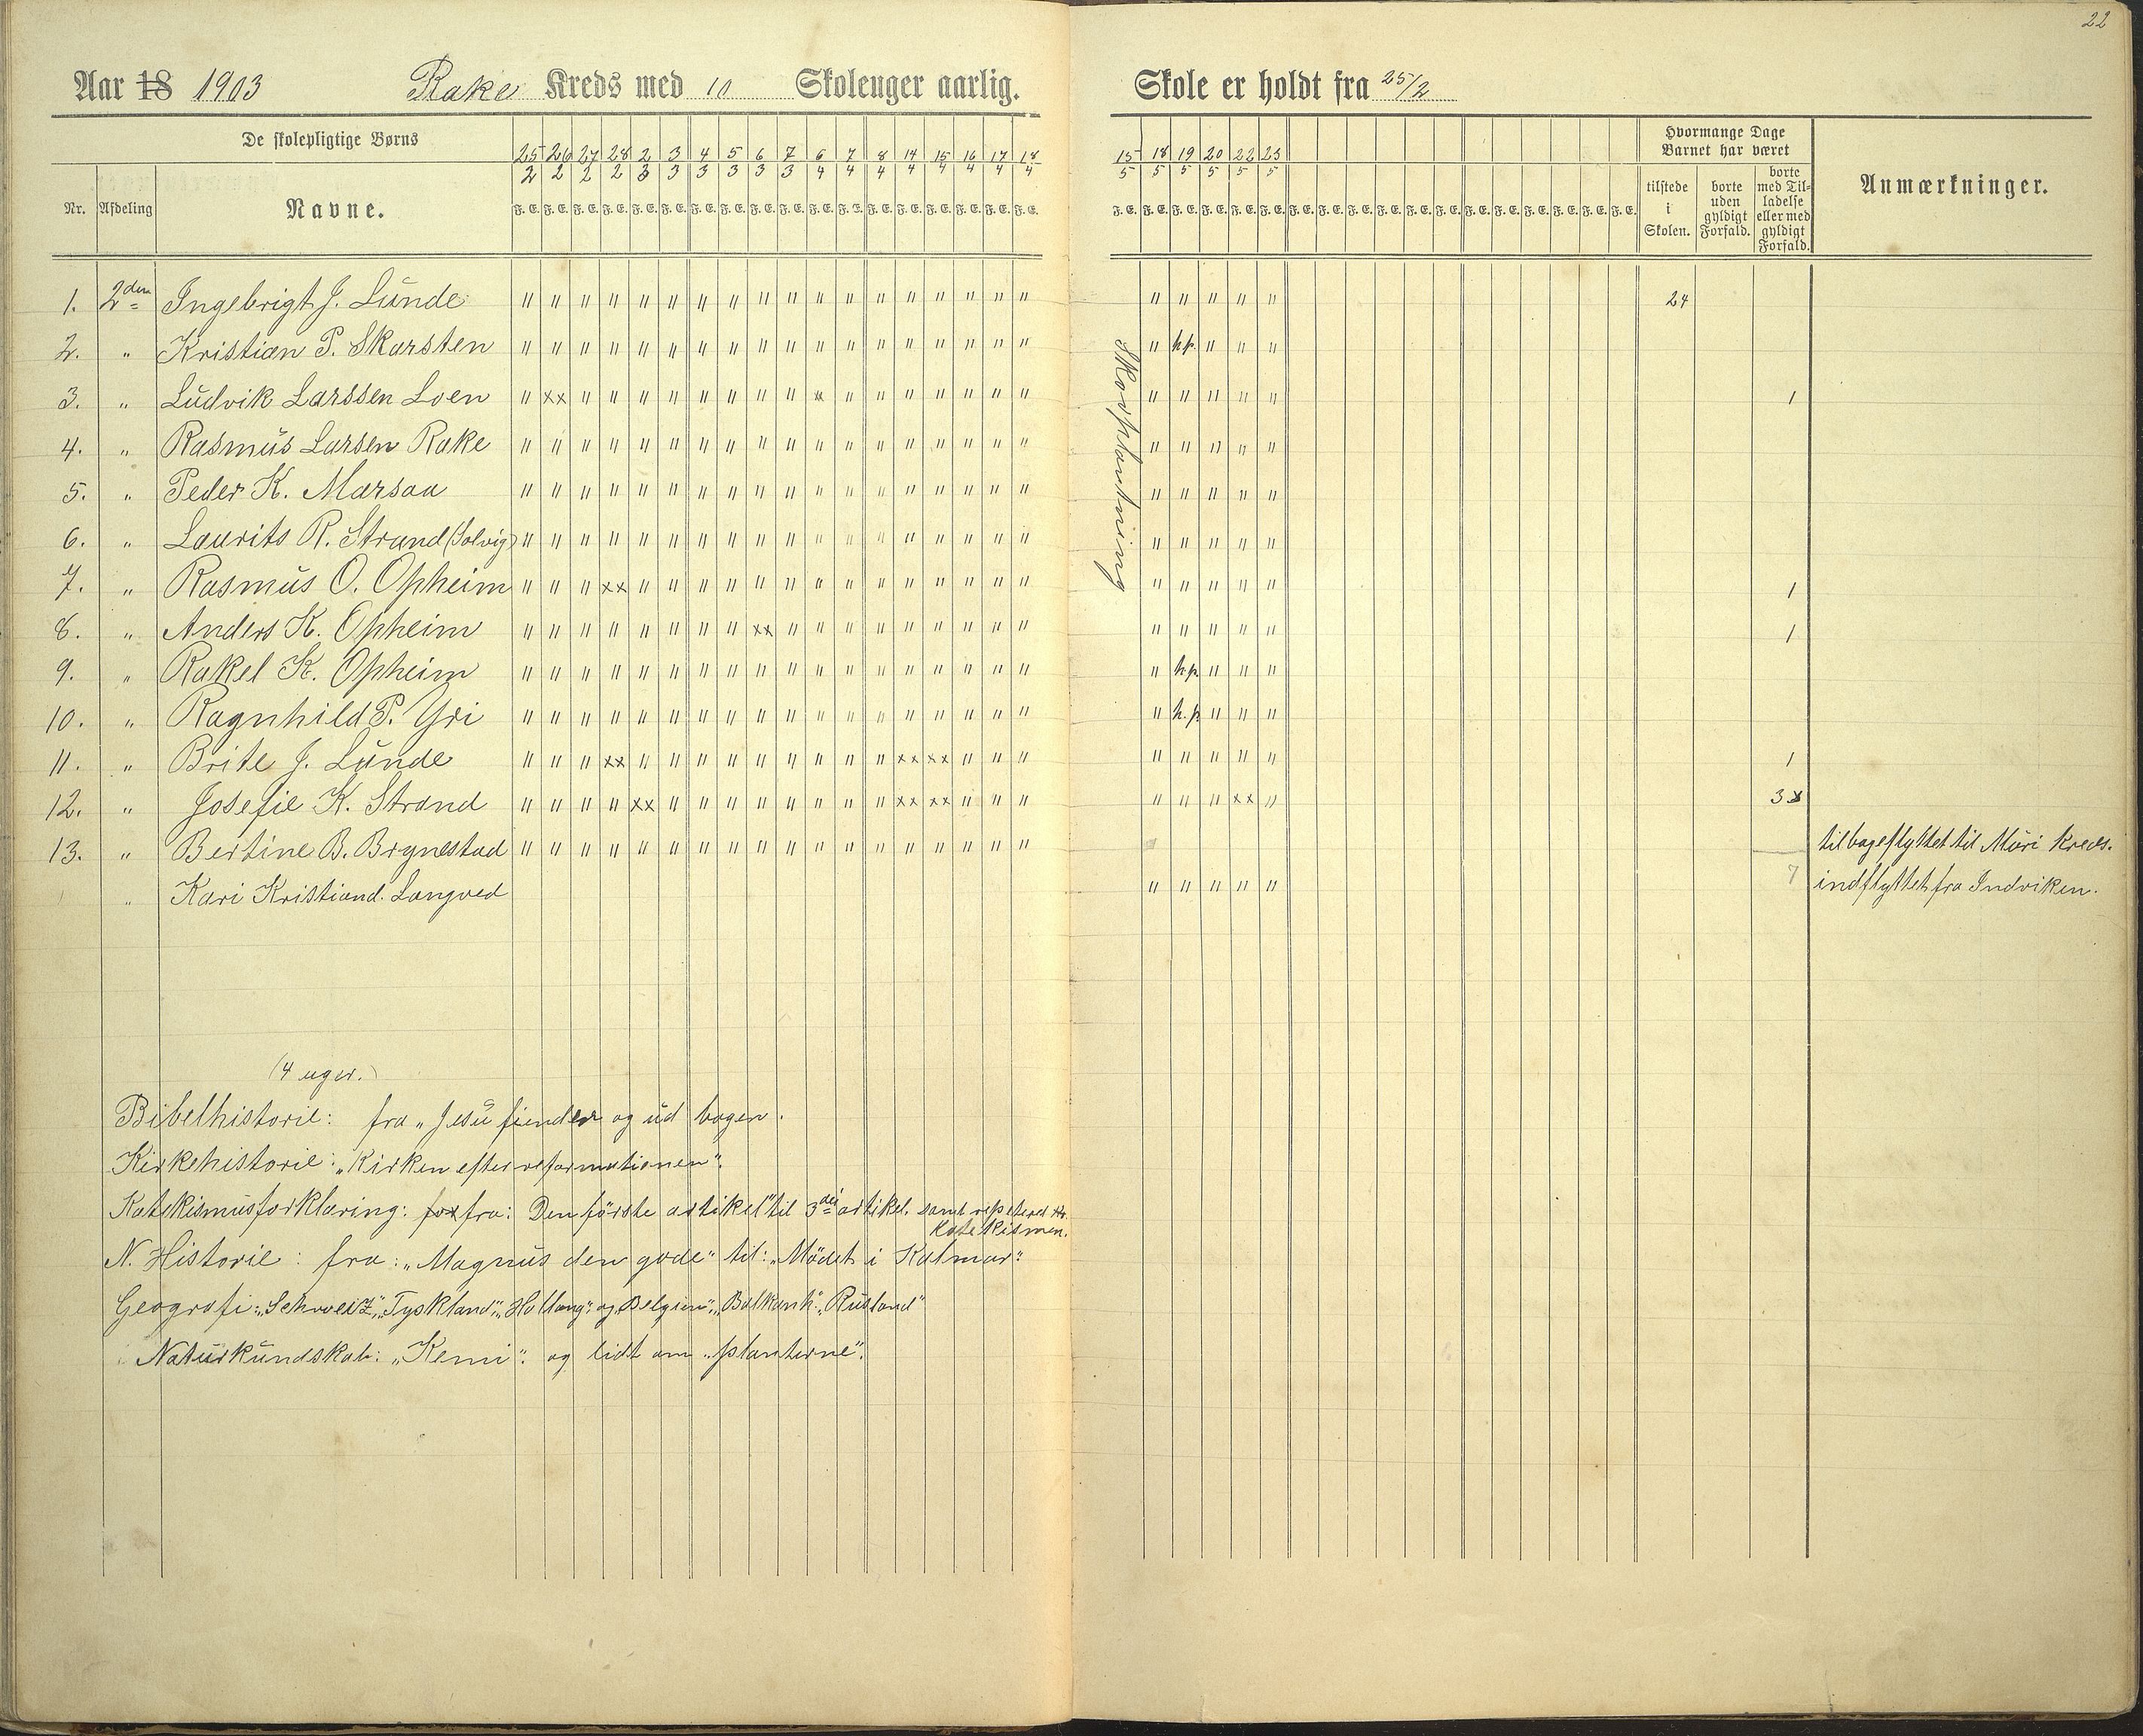 22
Aar 18 1903 Rake Kreds med 10 Skoleuger aarlig. Skole er holdt fra 25/2
De skolepligtige Børns
Nr. Afdeling Navne.
25/2 26/2 27/2 28/2 2/3 3/3 4/3 5/3 6/3 7/3 6/4 7/4 8/4 14/4 15/4 16/4 17/4 18/4
15/5 18/5 19/5 20/5 22/5 23/5
F. E. F. E. F. E. F. E. F. E. F. E. F. E. F. E. F. E. F. E. F. E. F. E. F. E. F. E. F. E. F. E. F. E. F. E.
F. E. F. E. F. E. F. E. F. E. F. E. F. E. F. E. F. E. F. E. F. E. F. E. F. E. F. E. F. E. F. E. F. E. F. E.
Hvormange Dage
Barnet har været
tilstede
i
Skolen.
borte
uden
gyldigt
Forfald.
borte
med Til-
ladelse
eller med
gyldigt
Forfald.
Anmærkninger.
1. 2den Ingebrigt J. Lunde " " " " " " " " " " " " " " " " " " " " " " " 24
2. " Kristian P. Skarsten " " " " " " " " " " " " " " " " " " " h.p. " " "
3. " Ludvik Larssen Loen " xx " " " " " " " " x " " " " " " " " " " " " 1
4. " Rasmus Larsen Rake " " " " " " " " " " " " " " " " " " " " " " "
5. " Peder K. Marsaa " " " " " " " " " " " " " " " " " " " " " " "
6. " Laurits R. Strand (Solvig) " " " " " " " " " " " " " " " " " " " " " " "
7. " Rasmus O. Opheim " " " xx " " " " " " " " " " " " " " " " " " " 1
8. " Anders K. Opheim " " " " " " " " xx " " " " " " " " " " " " " " 1
9. " Rakel K. Opheim " " " " " " " " " " " " " " " " " " " h.p. " " "
10. " Ragnhild P. Yri " " " " " " " " " " " " " " " " " " " h.p. " " "
11. " Brite J. Lunde " " " xx " " " " " " " " " xx xx " " " " " " " " 1
12. " Josefie K. Strand " " " " xx " " " " " " " " xx xx " " " " " " xx " 3
13. " Bertine B. Brynestad " " " " " " " " " " " " " " " " " " tilbageflyttet til Muri kreds.
" Kari Kristiand. Langved " " " " " 7 indflyttet fra Indviken.
Skovplantning
(4 uger.)
Bibelhistorie: fra „Jesu fiender og ud bogen.
Kirkehistorie: „Kirken efter reformationen".
Katekismusforklaring: for fra: Den første artikel" til 3die artikel. samt repeteret
katekismen.
N. Historie: fra: „Magnus den gode" til: „Mödet i Kalmar".
Geografi: „Schweiz", „Tyskland", „Holland" og „Belgien", „Balkanh", „Rusland"
Naturkundskab: „Kemi". og lidt om „planterne".